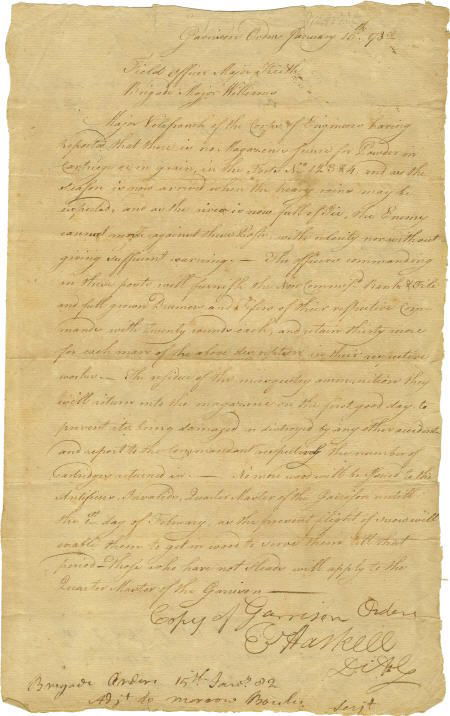 Garrison Orders January 15th
Field Officer Major Keith
Brigade Major Williams
Major Vilefranch of the Corps of Engineers having
reported that there is no Magazene for Powder in
Cartrige or in grain, in the Forts No. 1 2 3 & 4 and as the
season is now arrived when the heavy rains may be
expected, and as the river is now full of Ice, the Enemy
cannot move against these Posts, with velocity nor without
giving sufficient warning. — The officers commanding
in these posts will furnish the Non Commissd. Rank & File
and full grown Drumers and Fifers of their respective Com-
mands with Twenty rounds each, and retain thirty more
for each man of the above description in their respective
works. — The residue of the musquetry ammunition they
will return into the magazene on the first good day to
prevent its being damaged or distroyed by any other accident
and report to the Commandant respecting the number of
Cartridges returned in. — No more wood will be Issued to the
Artificers, Invaleds, Quarter Master of the Garrison untill
the day of February, as the present flight of snow will
enable them to get in wood to serve them till that
period — Those who have not Sleads will apply to the
Quarter Master of the Garrison —
Copy of Garrison Orders
Haskell
Brigade Orders 15th Jany. 82
Adjt. to morrow Serjt